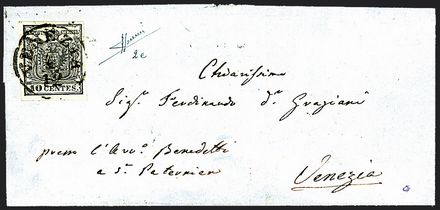 VENEZIA
10 CENTES.
2e
Chiarissimo
Sig.r Ferdinando D.r Graziani
presso l'Avv.o Benedetti
a S.n Paternian
Venezia